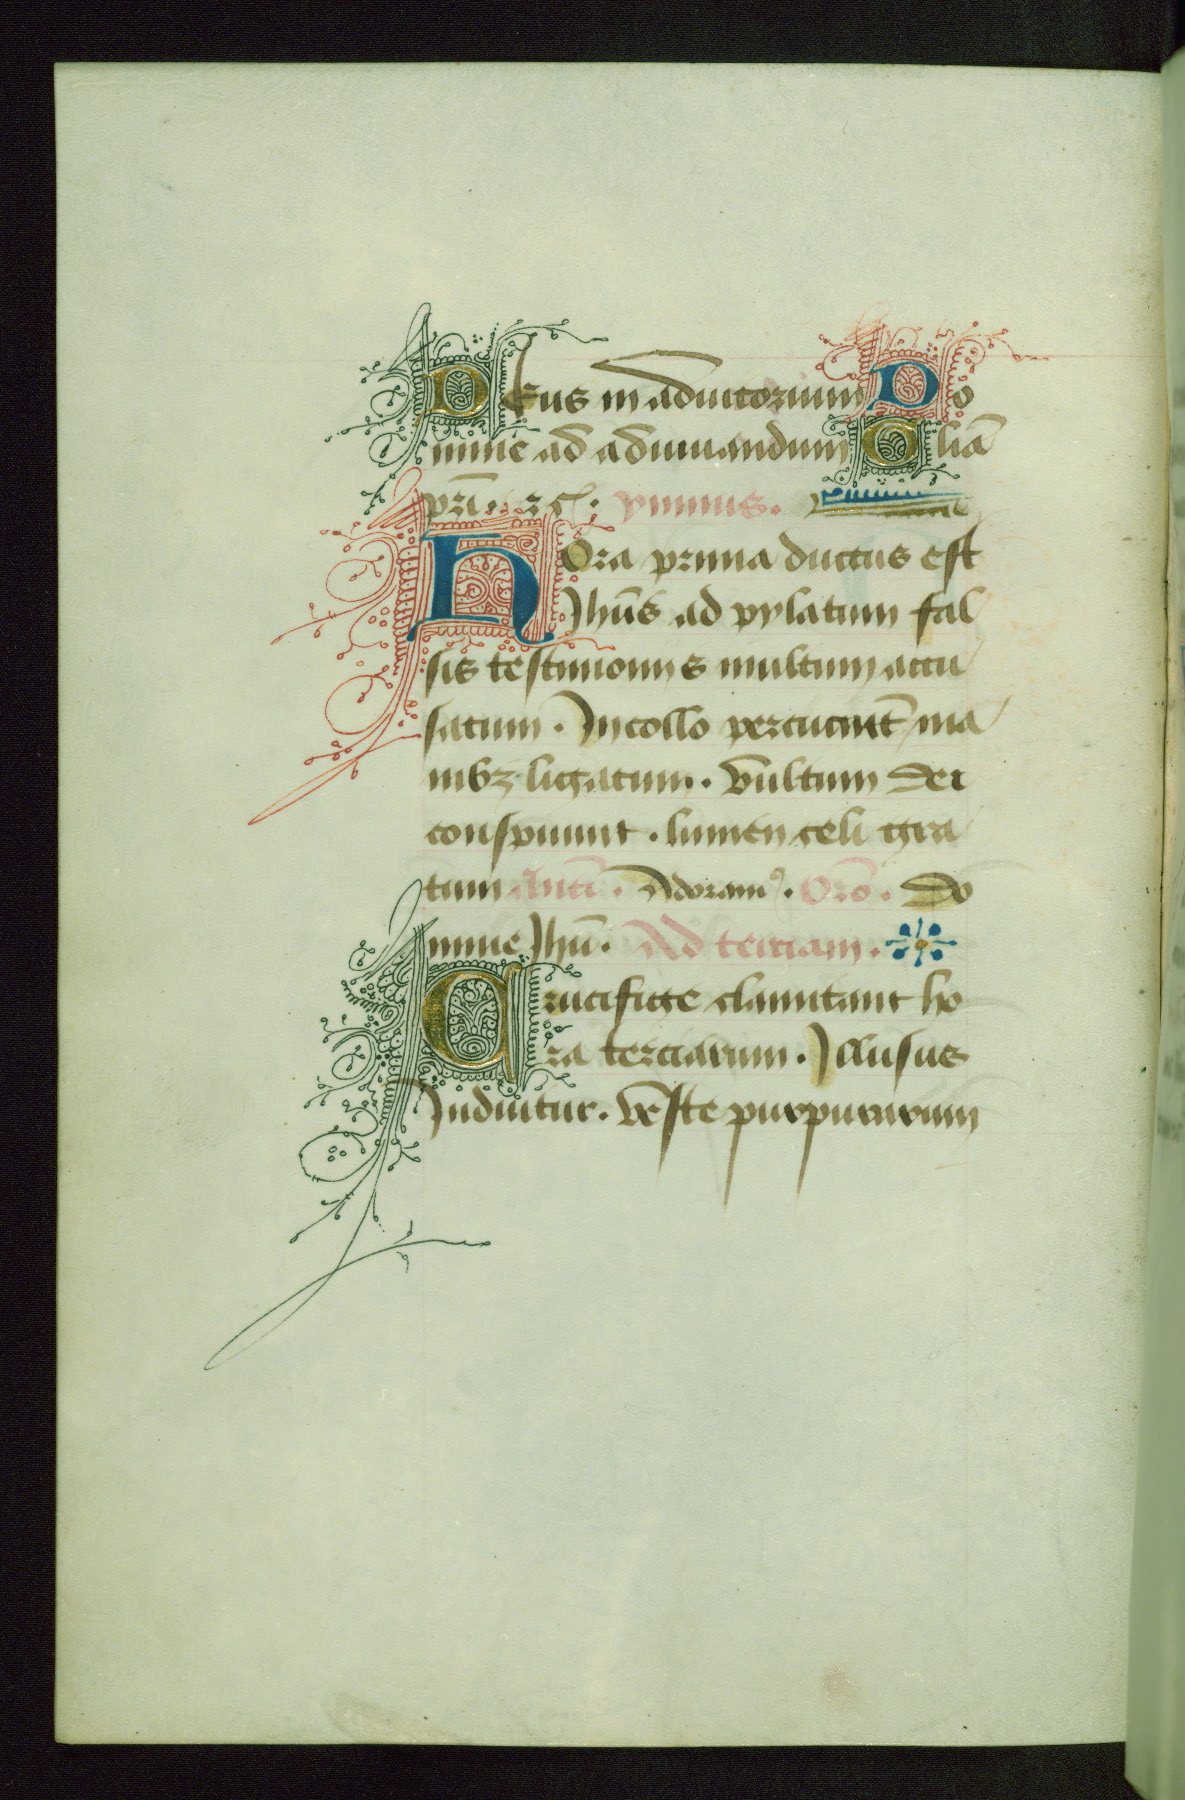 Deus in adiutorium Do
mine ad adiuuandum Gliã
pr̃i. et c̃. ymnus.
Hora prima ductus est
Jhũs ad pylatum fal
sis testimoniis multum accu
satum. In collo percuciũt ma
nibꝫ ligatum. vultum dei
conspuunt. lumen celi gra
tum Antĩ. Adoramꝰ. Orõ. Do
mine Jhũ. Ad terciam.
Crucifige clamitant ho
ra terciarum. Illusus
Induitur. veste purpurarum